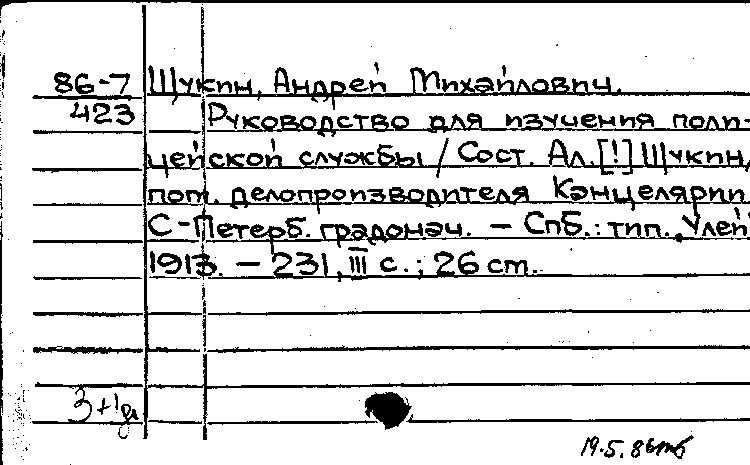 86-7 Щукин, Андрей Михайлович.
423 Руководство для изучения поли-
цейской службы / Сост. Ал. [!] Щукин,
пом. делопроизводителя Канцелярии
С-Петерб. градонач. — Спб.: тип. „Улей
1913. — 231, III с.; 26 см.
3+1
19.5.86